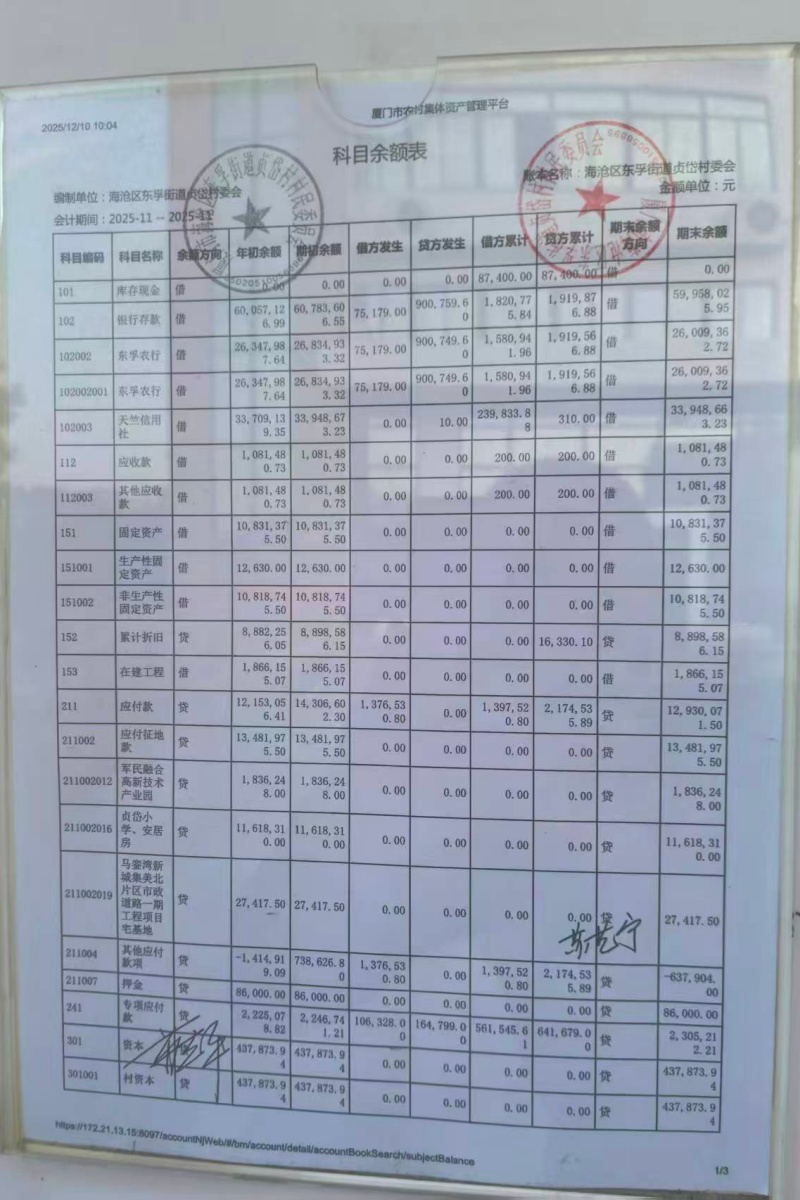 2025/12/10 10:04
厦门市农村集体资产管理平台
科目余额表
编制单位：海沧区东孚街道贞岱村委会
账本名称：海沧区东孚街道贞岱村委会
会计期间：2025-11 -- 2025-11
金额单位：元
科目编码 科目名称 余额方向 年初余额 期初余额 借方发生 贷方发生 借方累计 贷方累计 期末余额方向 期末余额
101 库存现金 借 0.00 0.00 0.00 0.00 87,400.00 87,400.00 借 0.00
102 银行存款 借 60,057,126.99 60,783,606.55 75,179.00 900,759.60 1,820,775.84 1,919,876.88 借 59,958,025.95
102002 东孚农行 借 26,347,987.64 26,834,933.32 75,179.00 900,749.60 1,580,941.96 1,919,566.88 借 26,009,362.72
102002001 东孚农行 借 26,347,987.64 26,834,933.32 75,179.00 900,749.60 1,580,941.96 1,919,566.88 借 26,009,362.72
102003 天竺信用社 借 33,709,139.35 33,948,673.23 0.00 10.00 239,833.88 310.00 借 33,948,663.23
112 应收款 借 1,081,480.73 1,081,480.73 0.00 0.00 200.00 200.00 借 1,081,480.73
112003 其他应收款 借 1,081,480.73 1,081,480.73 0.00 0.00 200.00 200.00 借 1,081,480.73
151 固定资产 借 10,831,375.50 10,831,375.50 0.00 0.00 0.00 0.00 借 10,831,375.50
151001 生产性固定资产 借 12,630.00 12,630.00 0.00 0.00 0.00 0.00 借 12,630.00
151002 非生产性固定资产 借 10,818,745.50 10,818,745.50 0.00 0.00 0.00 0.00 借 10,818,745.50
152 累计折旧 贷 8,882,256.05 8,898,586.15 0.00 0.00 0.00 16,330.10 贷 8,898,586.15
153 在建工程 借 1,866,155.07 1,866,155.07 0.00 0.00 0.00 0.00 借 1,866,155.07
211 应付款 贷 12,153,056.41 14,306,602.30 1,376,530.80 0.00 1,397,520.80 2,174,535.89 贷 12,930,071.50
211002 应付征地款 贷 13,481,975.50 13,481,975.50 0.00 0.00 0.00 0.00 贷 13,481,975.50
211002012 军民融合高新技术产业园 贷 1,836,248.00 1,836,248.00 0.00 0.00 0.00 0.00 贷 1,836,248.00
211002016 贞岱小学、安居房 贷 11,618,310.00 11,618,310.00 0.00 0.00 0.00 0.00 贷 11,618,310.00
211002019 马銮湾新城集美北片区市政道路一期工程项目宅基地 贷 27,417.50 27,417.50 0.00 0.00 0.00 0.00 贷 27,417.50
211004 其他应付款项 贷 -1,414,919.09 738,626.80 1,376,530.80 0.00 1,397,520.80 2,174,535.89 贷 -637,904.00
211007 押金 贷 86,000.00 86,000.00 0.00 0.00 0.00 0.00 贷 86,000.00
241 专项应付款 贷 2,225,078.82 2,246,741.21 106,328.00 164,799.00 561,545.61 641,679.00 贷 2,305,212.21
301 资本 437,873.94 437,873.94 0.00 0.00 0.00 0.00 贷 437,873.94
301001 村资本 贷 437,873.94 437,873.94 0.00 0.00 0.00 0.00 贷 437,873.94
https://172.21.13.15:8097/accountNjWeb/#/bm/account/detail/accountBookSearch/subjectBalance
1/3